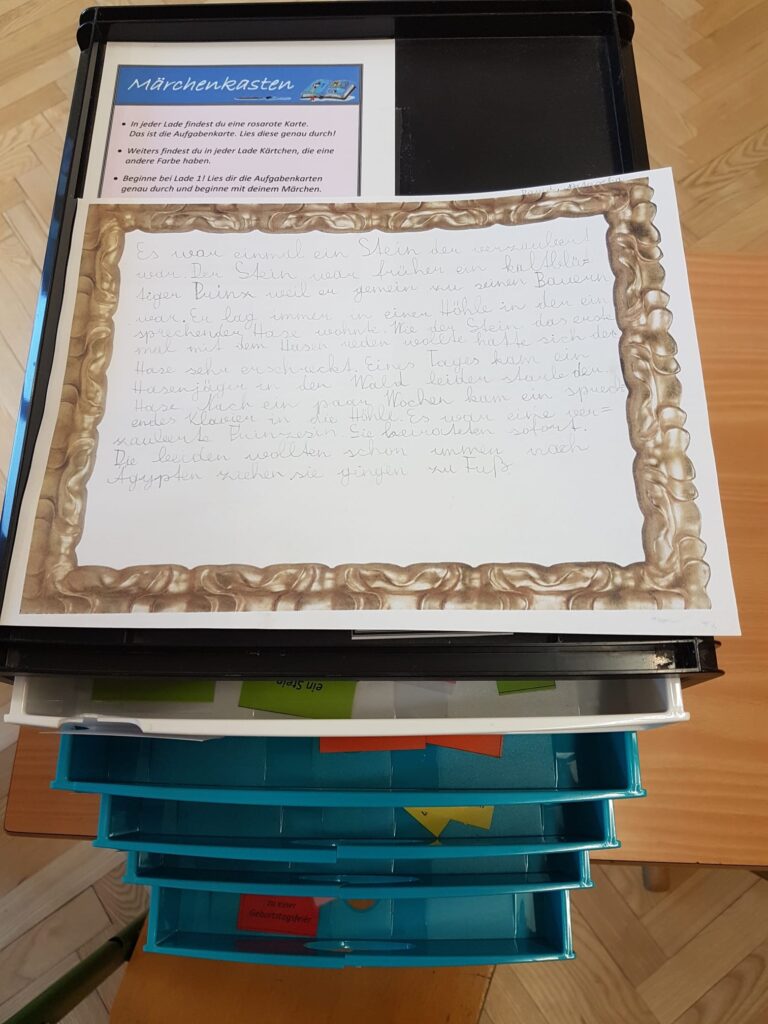 Märchenkasten
• In jeder Lade findest du eine rosarote Karte.
Das ist die Aufgabenkarte. Lies diese genau durch!
• Weiters findest du in jeder Lade Kärtchen, die eine
andere Farbe haben.
• Beginne bei Lade 1! Lies dir die Aufgabenkarten
genau durch und beginne mit deinem Märchen.
Es war einmal ein Stein der verzaubert
war. Der Stein war früher ein kaltblü=
tiger Prinz weil er gemein zu seinen Bauern
war. Er lag immer in einer Höhle in der ein
sprechender Hase wohnte. Wie der Stein das erste
mal mit dem Hasen reden wollte hatte sich der
Hase sehr erschreckt. Eines Tages kam ein
Hasenjäger in den Wald leider starb der
Hase. Nach ein paar Wochen kam ein sprech
endes Klavier in die Höhle. Es war eine ver=
zauberte Prinzesin. Sie heirateten sofort.
Die beiden wollten schon immer nach
Ägypten ziehen, sie gingen zu Fuß
ein Stein
zu einer
Geburtstagsfeier